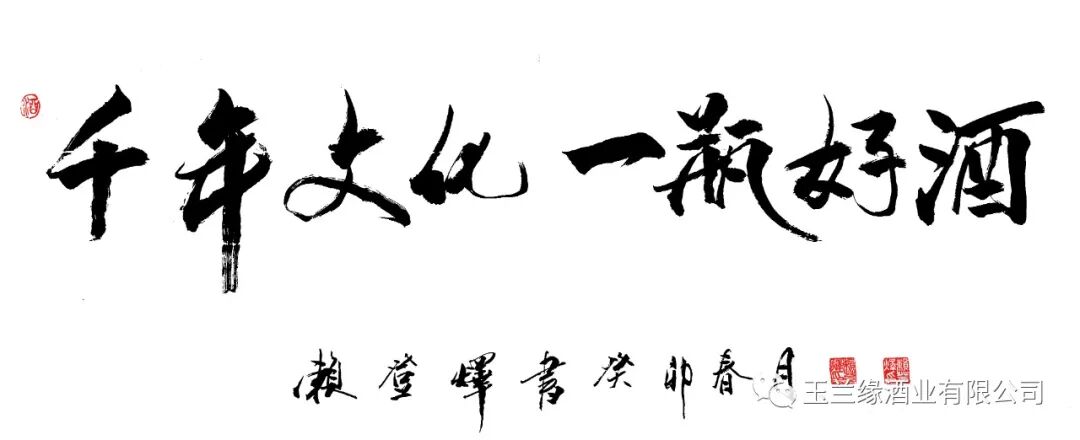 千年文化 一瓶好酒
賴登暉書癸卯春月
玉兰缘酒业有限公司